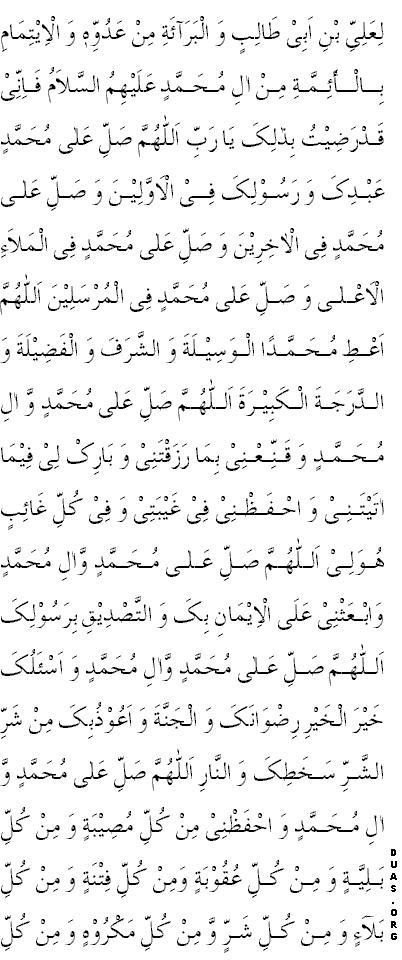 لِعَلِيِّ بْنِ اَبِىْ طَالِبٍ وَ الْبَرَآئَةِ مِنْ عَدُوِّهٖ وَ الْاِيْتِمَامِ
بِالْأَئِمَّةِ مِنْ اٰلِ مُحَمَّدٍ عَلَيْهِمُ السَّلاَمُ فَاِنِّىْ
قَدْرَضِيْتُ بِذٰلِکَ يَا رَبِّ اَللّٰهُمَّ صَلِّ عَلٰى مُحَمَّدٍ
عَبْدِکَ وَ رَسُوْلِکَ فِىْ الْاَوَّلِيْنَ وَ صَلِّ عَلٰى
مُحَمَّدٍ فِى الْاٰخِرِيْنَ وَ صَلِّ عَلٰى مُحَمَّدٍ فِى الْمَلَاءِ
الْاَعْلٰى وَ صَلِّ عَلٰى مُحَمَّدٍ فِى الْمُرْسَلِيْنَ اَللّٰهُمَّ
اَعْطِ مُحَمَّدًا الْوَسِيْلَةَ وَ الشَّرَفَ وَ الْفَضِيْلَةَ وَ
الدَّرَجَةَ الْكَبِيْرَةَ اَللّٰهُمَّ صَلِّ عَلٰى مُحَمَّدٍ وَّ اٰلِ
مُحَمَّدٍ وَ قَنِّعْنِىْ بِمَا رَزَقْتَنِىْ وَ بَارِکْ لِىْ فِيْمَا
اٰتَيْتَنِىْ وَ احْفَظْنِىْ فِىْ غَيْبَتِىْ وَ فِىْ كُلِّ غَائِبٍ
هُوَلِىْ اَللّٰهُمَّ صَلِّ عَلٰى مُحَمَّدٍ وَّاٰلِ مُحَمَّدٍ
وَابْعَثْنِىْ عَلَى الْاِيْمَانِ بِکَ وَ التَّصْدِيْقِ بِرَسُوْلِکَ
اَللّٰهُمَّ صَلِّ عَلٰى مُحَمَّدٍ وَّاٰلِ مُحَمَّدٍ وَ اَسْئَلُکَ
خَيْرَ الْخَيْرِ رِضْوَانَکَ وَ الْجَنَّةَ وَ اَعُوْذُبِکَ مِنْ شَرِّ
الشَّرِّ سَخَطِکَ وَ النَّارِ اَللّٰهُمَّ صَلِّ عَلٰى مُحَمَّدٍ وَّ
اٰلِ مُحَمَّدٍ وَ احْفَظْنِىْ مِنْ كُلِّ مُصِيْبَةٍ وَ مِنْ كُلِّ
بَلِيَّةٍ وَ مِنْ كُلِّ عُقُوْبَةٍ وَمِنْ كُلِّ فِتْنَةٍ وَ مِنْ كُلِّ
بَلَآءٍ وَ مِنْ كُلِّ شَرٍّ وَّ مِنْ كُلِّ مَكْرُوْهٍ وَ مِنْ كُلِّ
DUAS.ORG